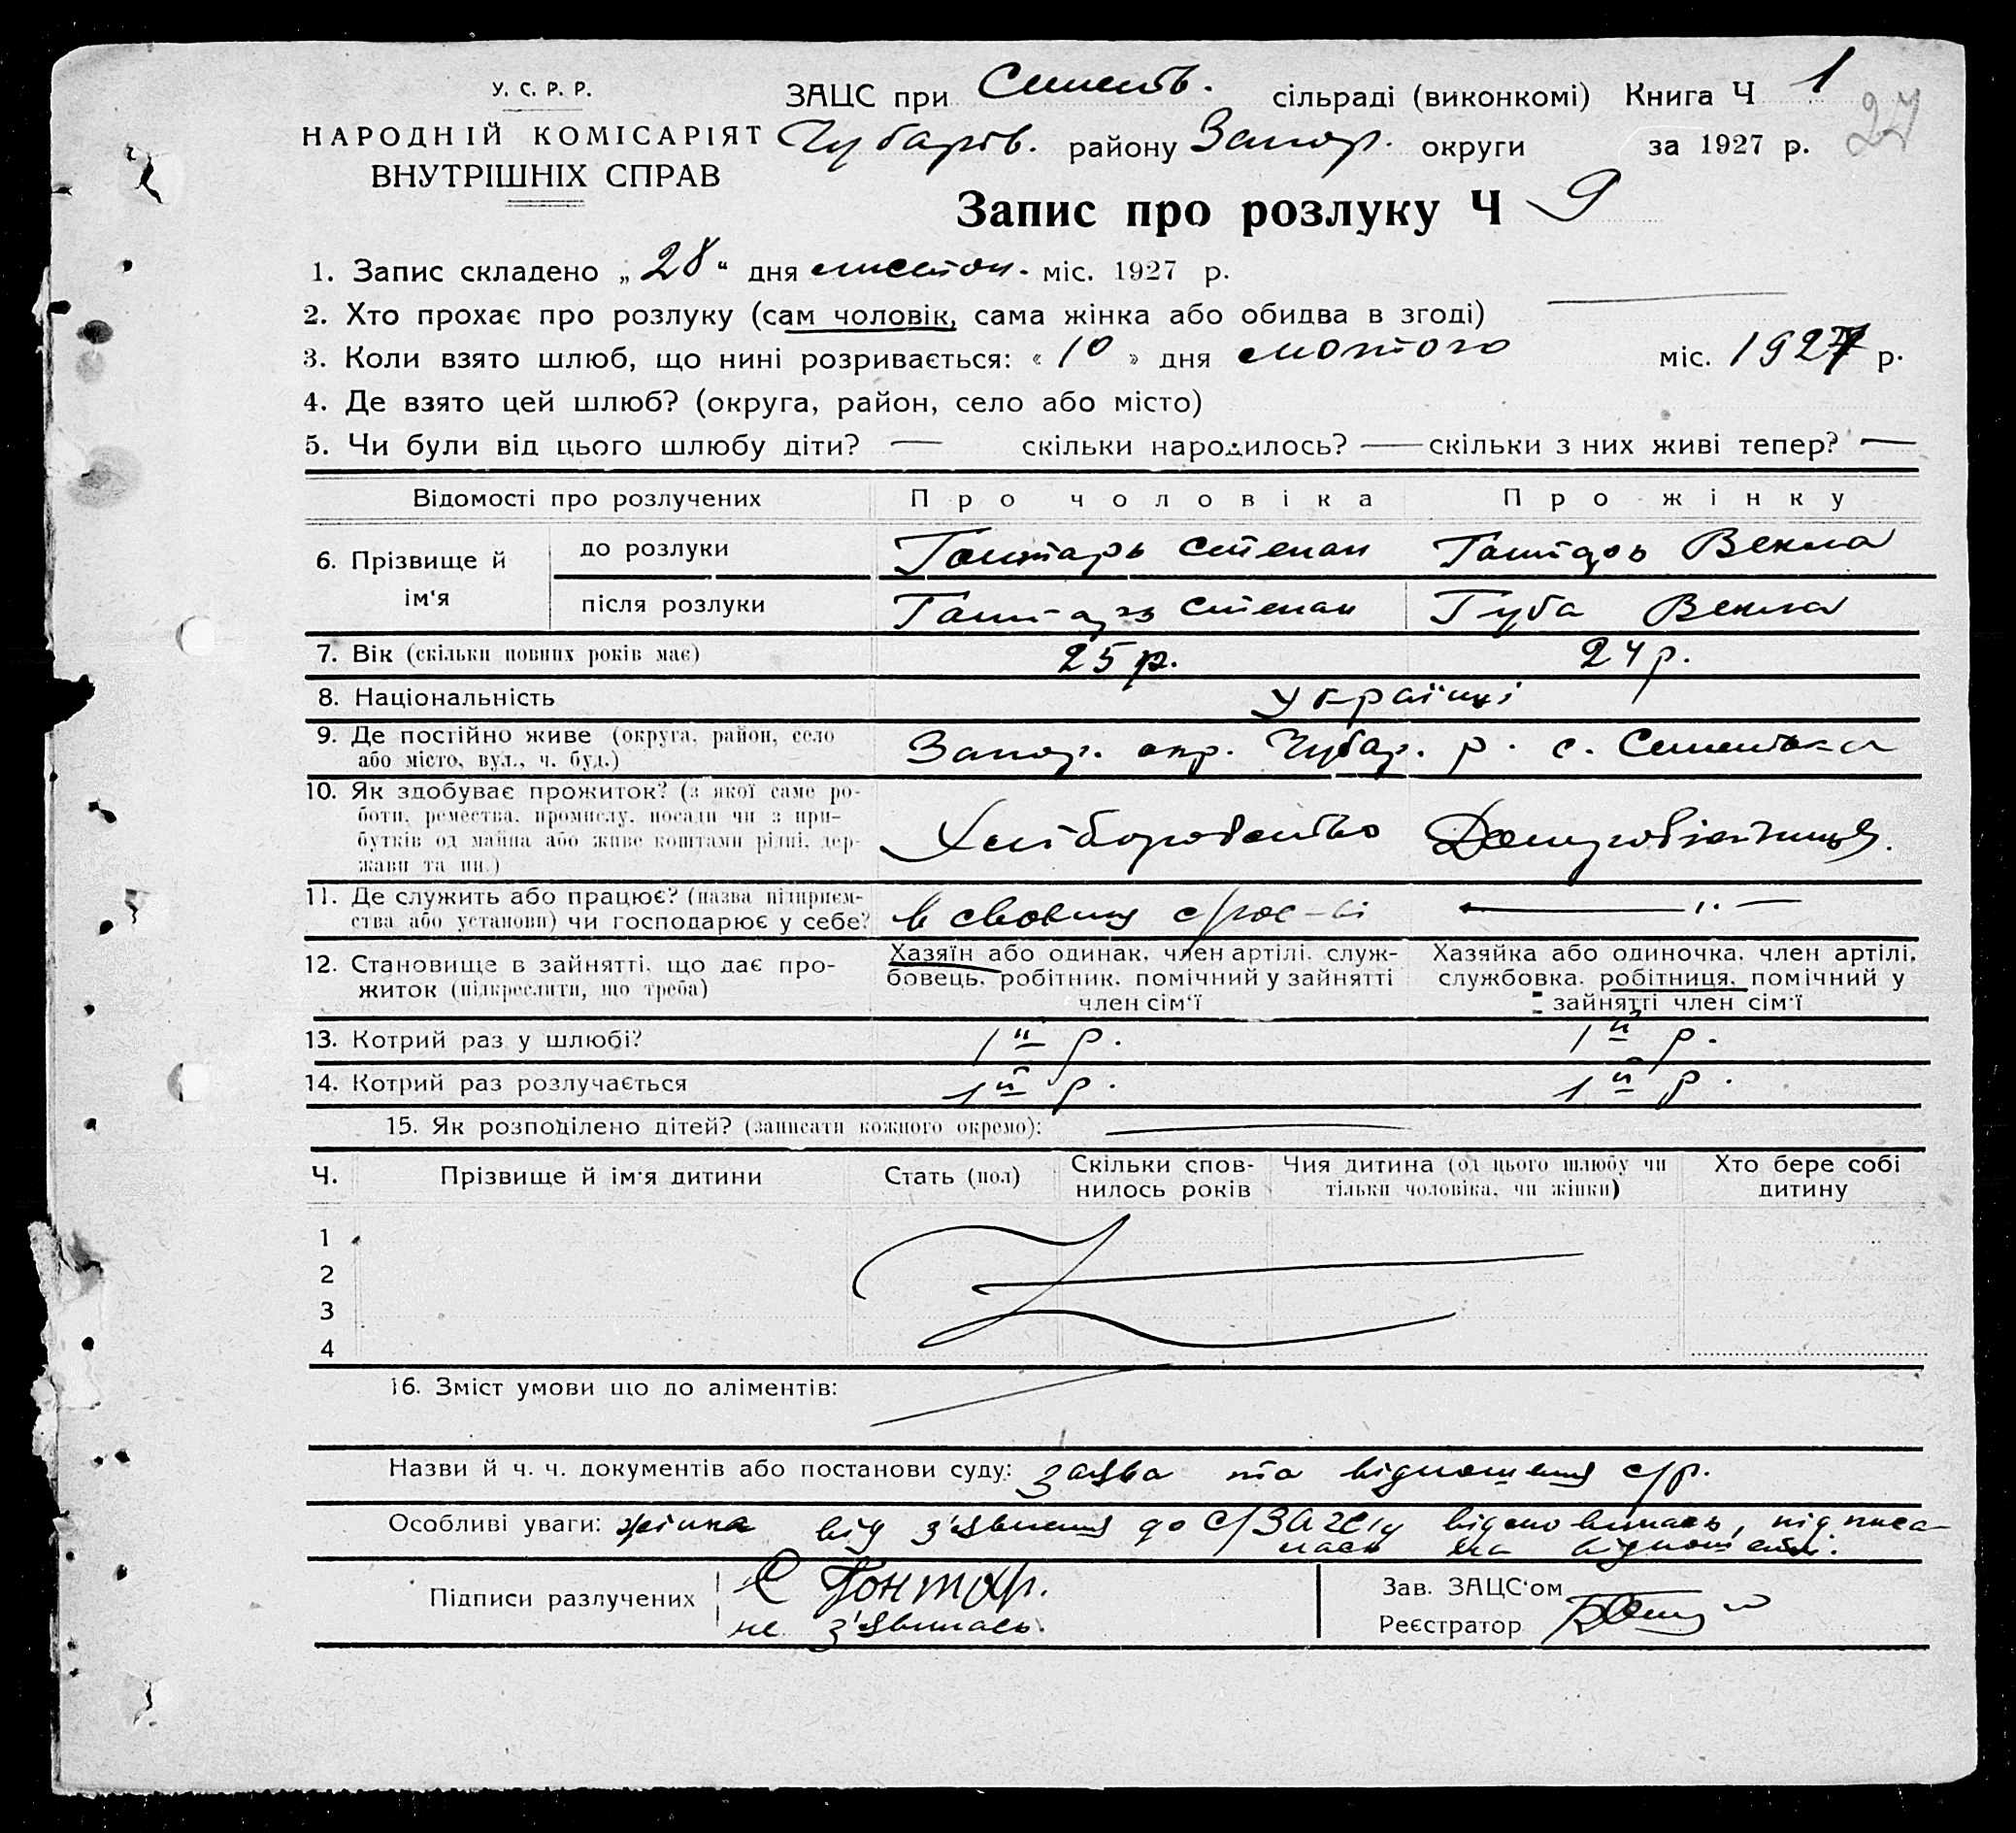 У. С. Р. Р.
НАРОДНІЙ КОМІСАРІЯТ
ВНУТРІШНІХ СПРАВ
ЗАЦС при Семенів. сільраді (виконкомі) Книга Ч 1
27
Чубарів. району Запор. округи за 1927 р.
Запис про розлуку Ч 9
1. Запис складено „ 28 “ дня листоп. міс. 1927 р.
2. Хто прохає про розлуку (сам чоловік, сама жінка або обидва в згоді)
3. Коли взято шлюб, що нині розривається: « 10 » дня лютого міс. 1927 р.
4. Де взято цей шлюб? (округа, район, село або місто)
5. Чи були від цього шлюбу діти? — скільки народилось? — скільки з них живі тепер? —
Відомості про розлучених Про чоловіка Про жінку
6. Прізвище й ім‘я до розлуки Гонтарь Степан Гонтарь Векла
після розлуки Гонтарь Степан Губа Векла
7. Вік (скільки повних років має) 25 р. 24 р.
8. Національність Українці
9. Де постійно живе (округа, район, село
або місто, вул., ч. буд.) Запор. окр. Чубар. р. с. Семенівка
10. Як здобуває прожиток? (з якої саме ро-
боти, ремества, промислу, посади чи з при-
бутків од майна або живе коштами рідні, дер-
жави та ин.) Хліборобство Домуробітниця.
11. Де служить або працює? (назва підприєм-
ства або установи) чи господарює у себе? в своєму с/гос-ві —— „ —
12. Становище в зайнятті, що дає про-
житок (підкреслити, що треба)
Хазяїн або одинак, член артілі, служ-
бовець, робітник, помічний у зайнятті
член сім‘ї
Хазяйка або одиночка, член артілі,
службовка, робітниця, помічний у
зайнятті член сім‘ї
13. Котрий раз у шлюбі? 1й р. 1й р.
14. Котрий раз розлучається 1й р. 1й р.
15. Як розподілено дітей? (записати кожного окремо): —
Ч. Прізвище й ім‘я дитини Стать (пол) Скільки спов-
нилось років Чия дитина (од цього шлюбу чи
тільки чоловіка, чи жінки) Хто бере собі
дитину
1
2
3
4
16. Зміст умови що до аліментів:
Назви й ч. ч. документів або постанови суду: заява та відношення с/р.
Особливі уваги: жінка від з'явлення до с/ЗАГСу відмовилась, підписа-
лась на відношенні.
Підписи разлучених С Гонтар.
не з'явилась.
Зав. ЗАЦС‘ом
Реєстратор